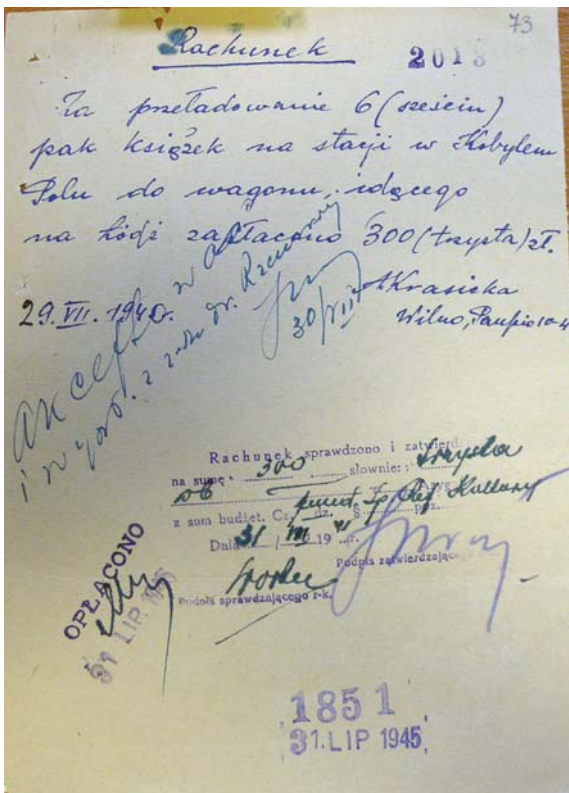 73
Rachunek
2013
Za przeładowanie 6 (sześciu)
pak książek na stacji w Kobylem
Polu do wagonu, idącego
na Łódź zapłacono 300 (trzysta) zł.
AKrasicka
29. VII. 1945.
Wilno, Paupio 10-4
30/VII
Rachunek sprawdzono i zatwierdz
na sumę 300 słownie: trzysta
z sum budżet. Cz. dz. § poz.
Dnia 31 / VII 19 45 r.
Podpis zatwierdzającego
Podpis sprawdzającego r-k.
OPŁACONO
31 LIP 1945
1851
31. LIP 1945